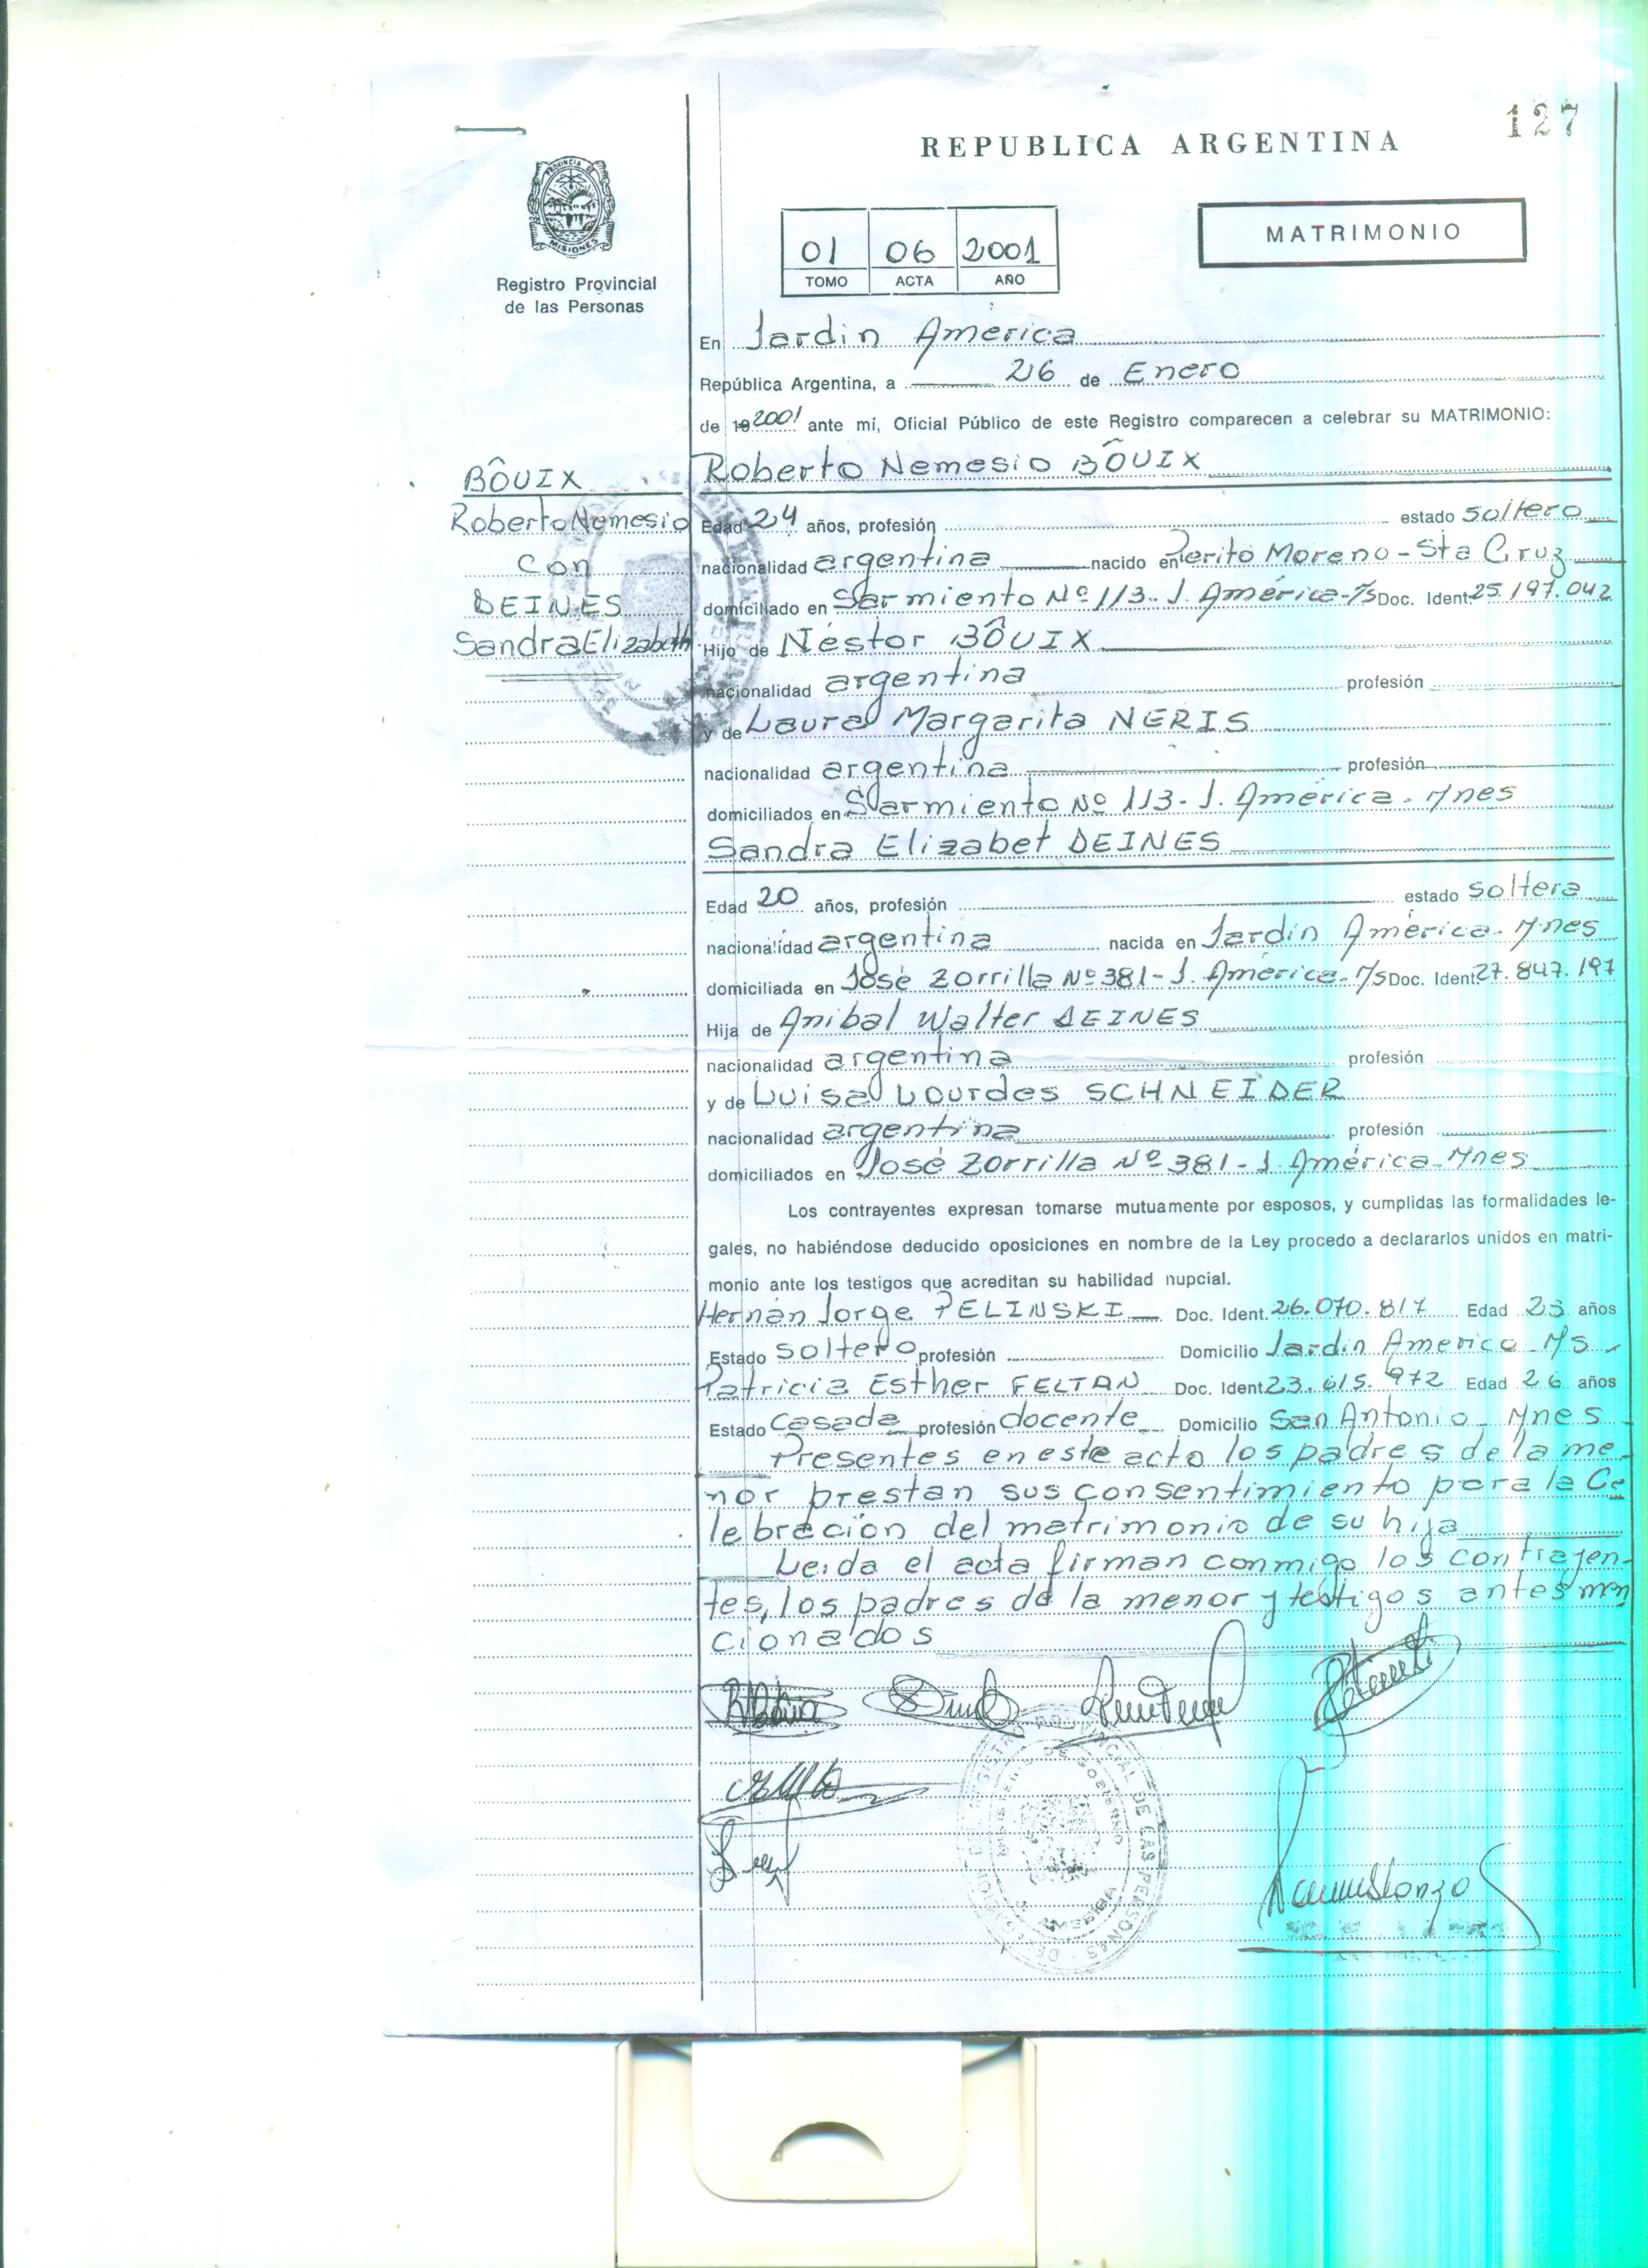 127
REPUBLICA ARGENTINA
MATRIMONIO
PROVINCIA DE
MISIONES
Registro Provincial
de las Personas
01 06 2001
TOMO ACTA AÑO
En Jardin América
República Argentina, a 26 de Enero
de 19 2001 ante mí, Oficial Público de este Registro comparecen a celebrar su MATRIMONIO:
BÔUIX
Roberto Nemesio
con
DEINES
Sandra Elizabeth
Roberto Nemesio BÔUIX
Edad 24 años, profesión estado soltero
nacionalidad argentina nacido en Perito Moreno - Sta Cruz
domiciliado en Sarmiento Nº 113 - J. América - M/s Doc. Ident. 25.197.042
Hijo de Néstor BÔUIX
nacionalidad argentina profesión
y de Laura Margarita NERIS
nacionalidad argentina profesión
domiciliados en Sarmiento Nº 113 - J. América - Mnes
Sandra Elizabet DEINES
Edad 20 años, profesión estado soltera
nacionalidad argentina nacida en Jardín América - Mnes
domiciliada en José Zorrilla Nº 381 - J. América - M/s Doc. Ident. 27.847.197
Hija de Anibal Walter DEINES
nacionalidad argentina profesión
y de Luisa Lourdes SCHNEIDER
nacionalidad argentina profesión
domiciliados en José Zorrilla Nº 381 - J. América - Mnes
Los contrayentes expresan tomarse mutuamente por esposos, y cumplidas las formalidades le-
gales, no habiéndose deducido oposiciones en nombre de la Ley procedo a declararlos unidos en matri-
monio ante los testigos que acreditan su habilidad nupcial.
Hernán Jorge PELINSKI Doc. Ident. 26.070.817 Edad 23 años
Estado soltero profesión Domicilio Jardin America - M/s
Patricia Esther FELTAN Doc. Ident. 23.615.972 Edad 26 años
Estado Casada profesión docente Domicilio San Antonio - Mnes
Presentes en este acto los padres de la me-
nor prestan sus consentimiento para la Ce
lebración del matrimonio de su hija
Leida el acta firman conmigo los contrayen-
tes, los padres de la menor y testigos antes men
cionados